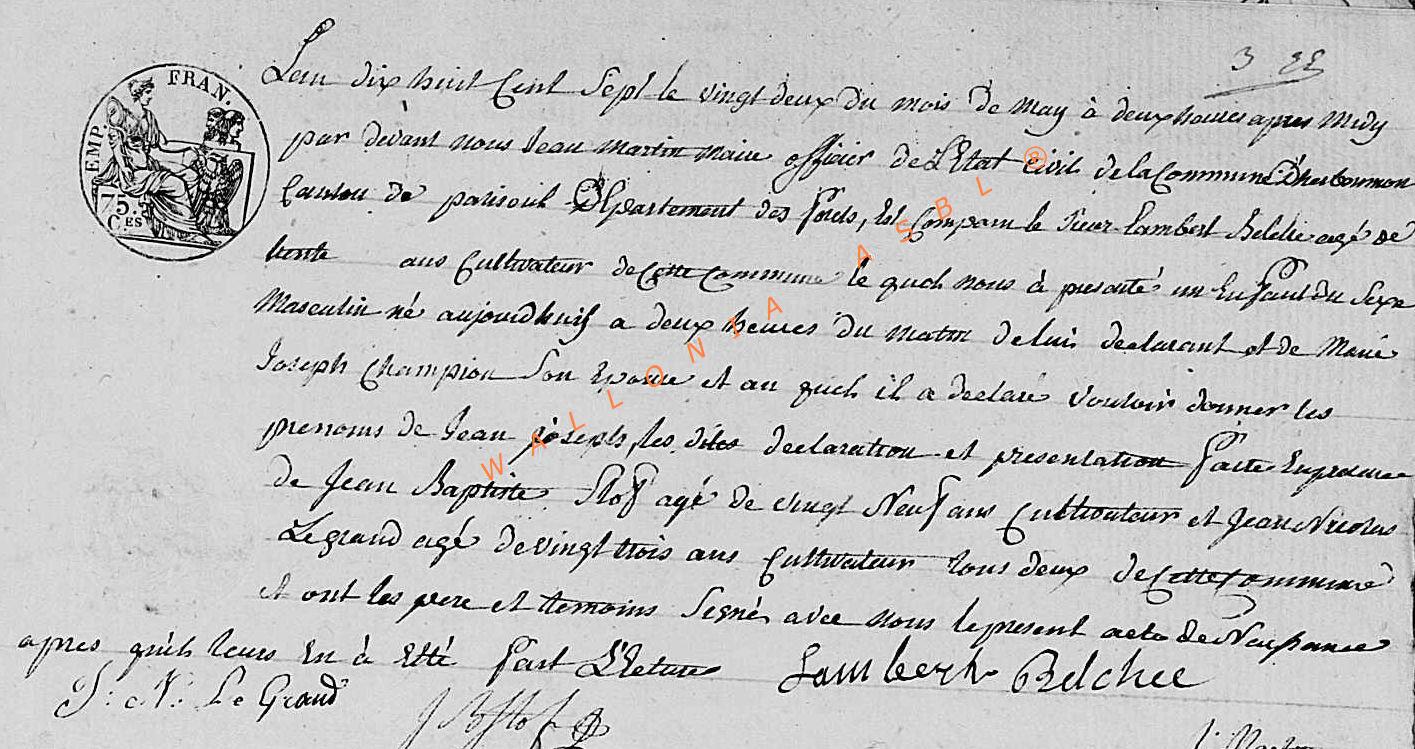 3 22
EMP. FRAN.
75.
CES
Lan dix huit Cent Sept le vingt deux du mois de May à deux heures apres midy
par devant nous Jean Martin Maire officier de LEtat Civil de la Commune Dherbeumon
Canton de paliseuil Département des forets, Est Comparu le sieur Lambert Belche agé de
trente ans Cultivateur de Cette Commune le quel nous à presenté un Enfant du Sexe
Masculin né aujourdhuis a deux heures du matin de luis declarant et de Marie
Joseph Champion Son Epouse et au quel il a declaré vouloir donner les
prenoms de Jean joseph, les dites declaration et presentation faite En presence
de Jean Baptiste Stof agé de vingt Neuf ans Cultivateur et Jean Nicolas
Legrand agé de vingt trois ans Cultivateur tous deux de Cette Commune
et ont les pere et temoins Signé avec nous le present acte de Naissance
apres qu'il leurs En à Etté fait L'Ecture
Lamberth Belchee
J: N: Le Grand
J B Stof
WALLONIA ASBL ®